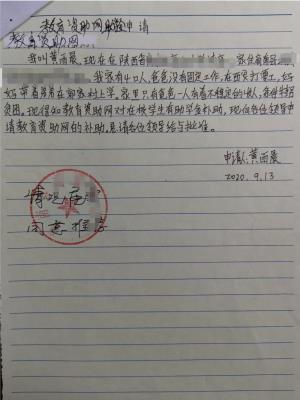 教育资助网助学申请
教育资助网:
我叫黄雨晨,现在在陕西省 家住南
我家有4口人,爸爸没有固定工作,在西安打零工,妈
妈带着弟弟在郭家村上学。家里只有爸爸一人有着不稳定的收入,条件特别
贫困。现得知教育资助网对在校学生有助学金补助。现向各位领导申
请教育资助网的补助。恳请各位领导给与批准。
申请人:黄雨晨
2020.9.13
情况属
同意推荐